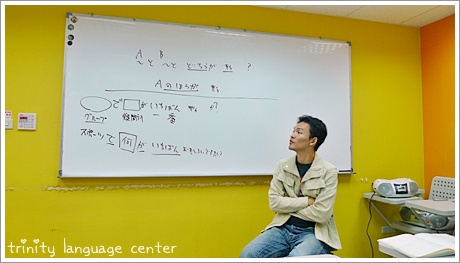 A B
~と ~と どちらが ?
Aのほうが
で が いちばん か?
グループ 疑問詞 一番
スポーツ で 何 が いちばん おもしろいですか?
trinity language center